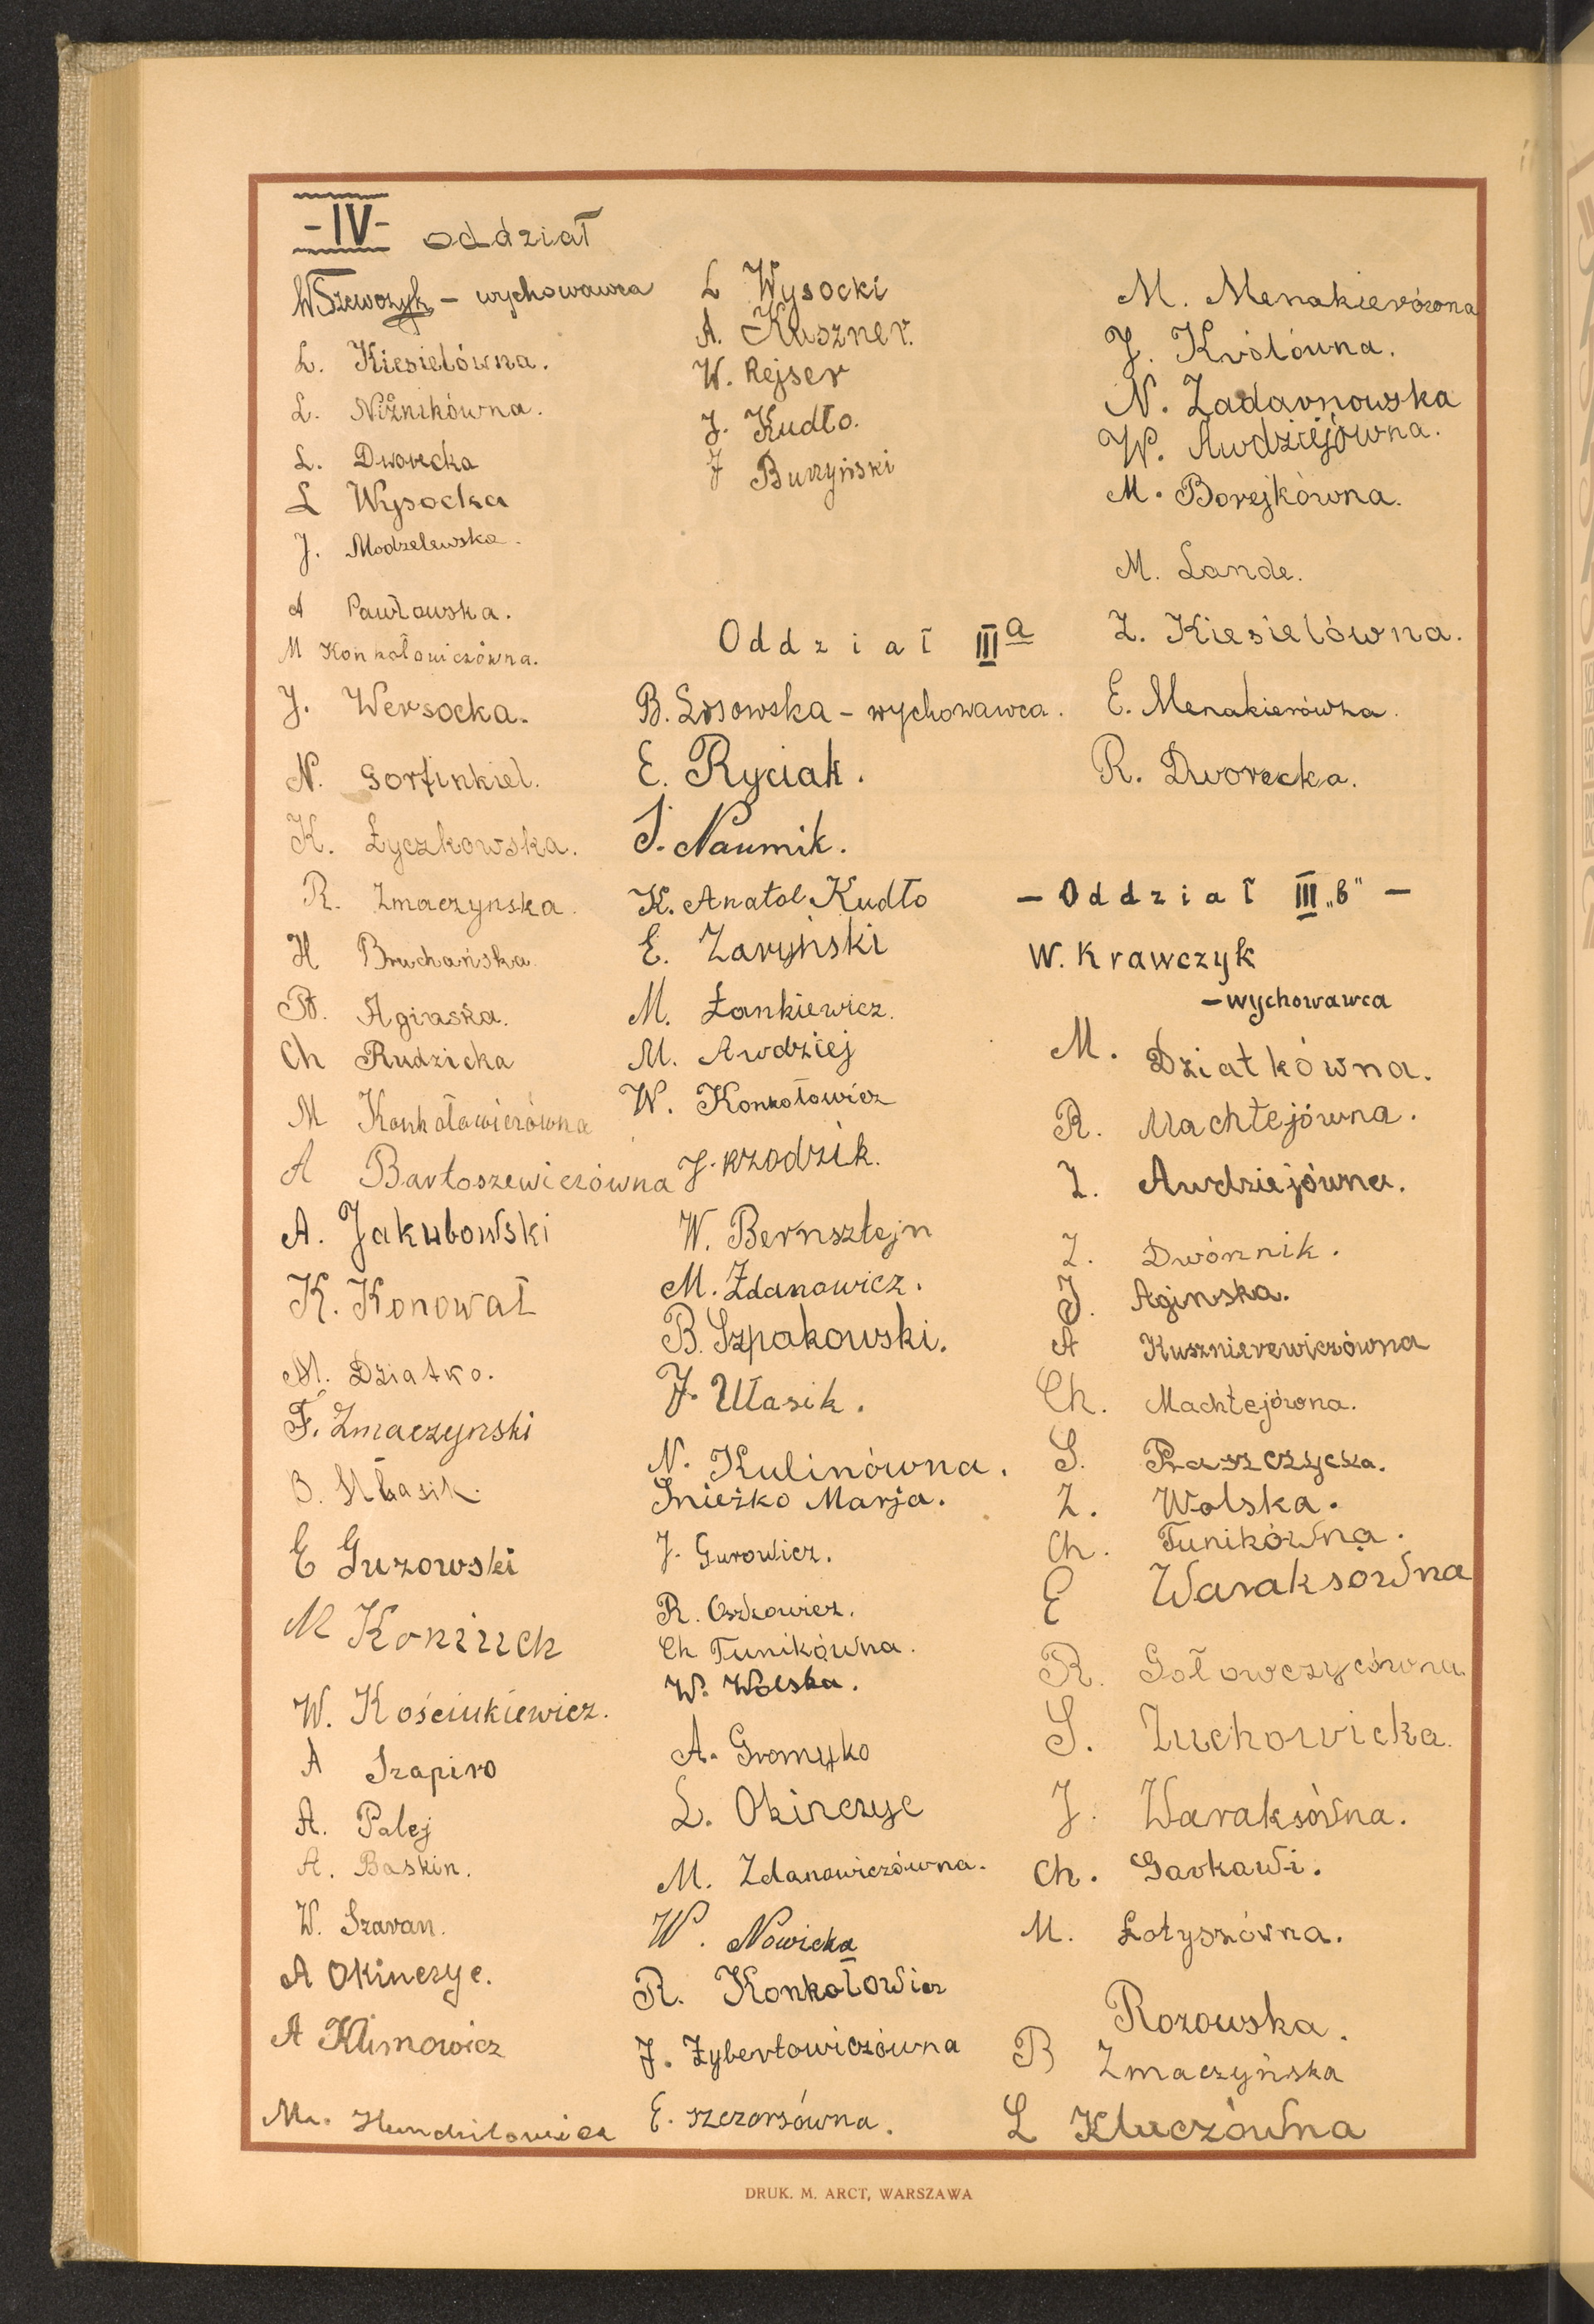 -IV- oddział
W Szewczyk - wychowawca
L. Kiesielówna.
L. Niźnikówna.
L. Dworecka
L Wysocka
J. Modzelewska.
A Pawłowska.
M Konkołowiczówna.
J. Wersocka.
N. Gorfinkiel.
K. Łyczkowska.
R. Zmaczynska.
H Bruchańska
B. Aginska.
Ch Rudzicka
M Konkołowiczówna
A Bartoszewiczówna
A. Jakubowski
K. Konował
M. Dziatko.
F. Zmaczynski
B. Ułasik.
E Guzowski
M Koniuch
W. Kościukiewicz.
A Szapiro
A. Palej
A. Baskin.
W. Szavan.
A Okinczyc.
A Klimowicz
M. Hendzilowicz
L Wysocki
A. Kuszner.
W. Rejser
J. Kudło.
J Burzyński
Oddział III a
B. Lisowska - wychowawca.
E. Ryciak.
S. Naumik.
K. Anatol Kudło
E. Zaryński
M. Łankiewicz.
M. Awdziej
W. Konkołowicz
J. Rzodzik.
W. Bernsztejn
M. Zdanowicz.
B. Szpakowski.
J. Ułasik.
N. Kulinówna.
Snieżko Marja.
J. Gurowicz.
R. Oszkowicz.
Ch Tunikówna.
W. Wolska.
A. Gromyko
L. Okinczyc
M. Zdanowiczówna.
W. Nowicka
R. Konkołowicz
J. Żybertowiczówna
E. Szczorsówna.
M. Menakierówna
J. Królówna.
N. Zadarnowska
W. Awdziejówna.
M. Borejkówna.
M. Lande.
Z. Kiesielówna.
E. Menakierówna.
R. Dworecka.
- Oddział III „B" -
W. Krawczyk
- wychowawca
M. Dziatkówna.
R. Machtejówna.
Z. Awdziejówna.
Z. Dwórnnik.
J. Aginska.
A Kusznierewiczówna
Ch. Machtejówna.
S. Praszczycka.
Z. Wolska.
Ch. Tunikówna.
E Waraksówna
R. Gołowczycówna.
S. Zuchowicka.
J. Waraksówna.
Ch. Garkawi.
M. Łotyszówna.
Rozowska.
B Zmaczyńska
L Kluczówna
DRUK. M. ARCT, WARSZAWA